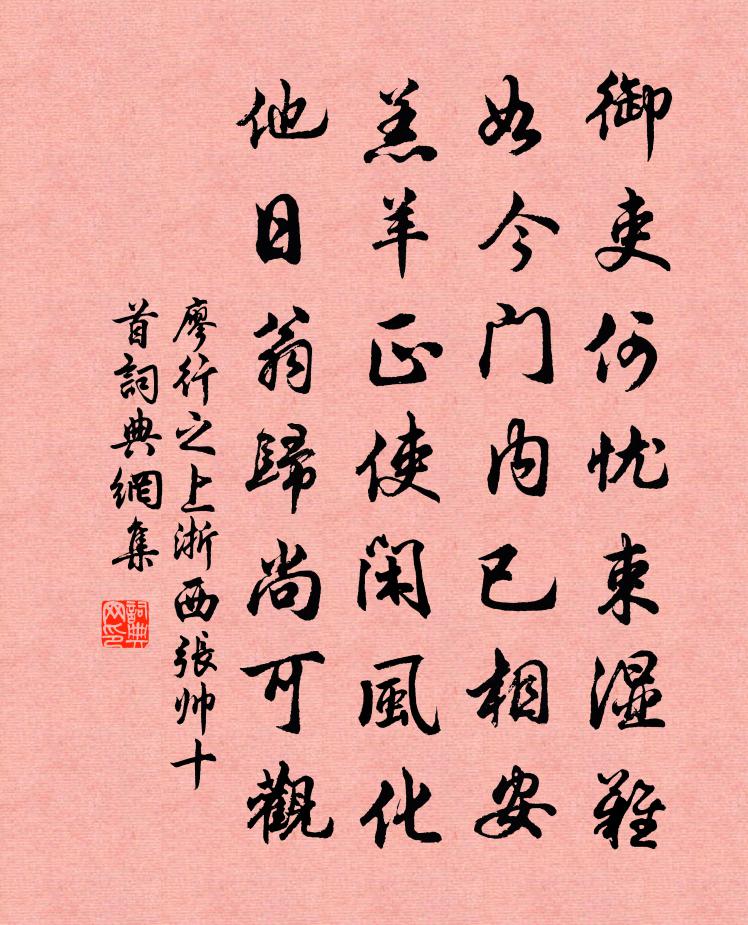 御吏何忧束湿難
如今门内已相安
羔羊正使閑風化
他日翁歸尚可觀
廖行之上浙西張帅十
首詞典網集
詞典网印